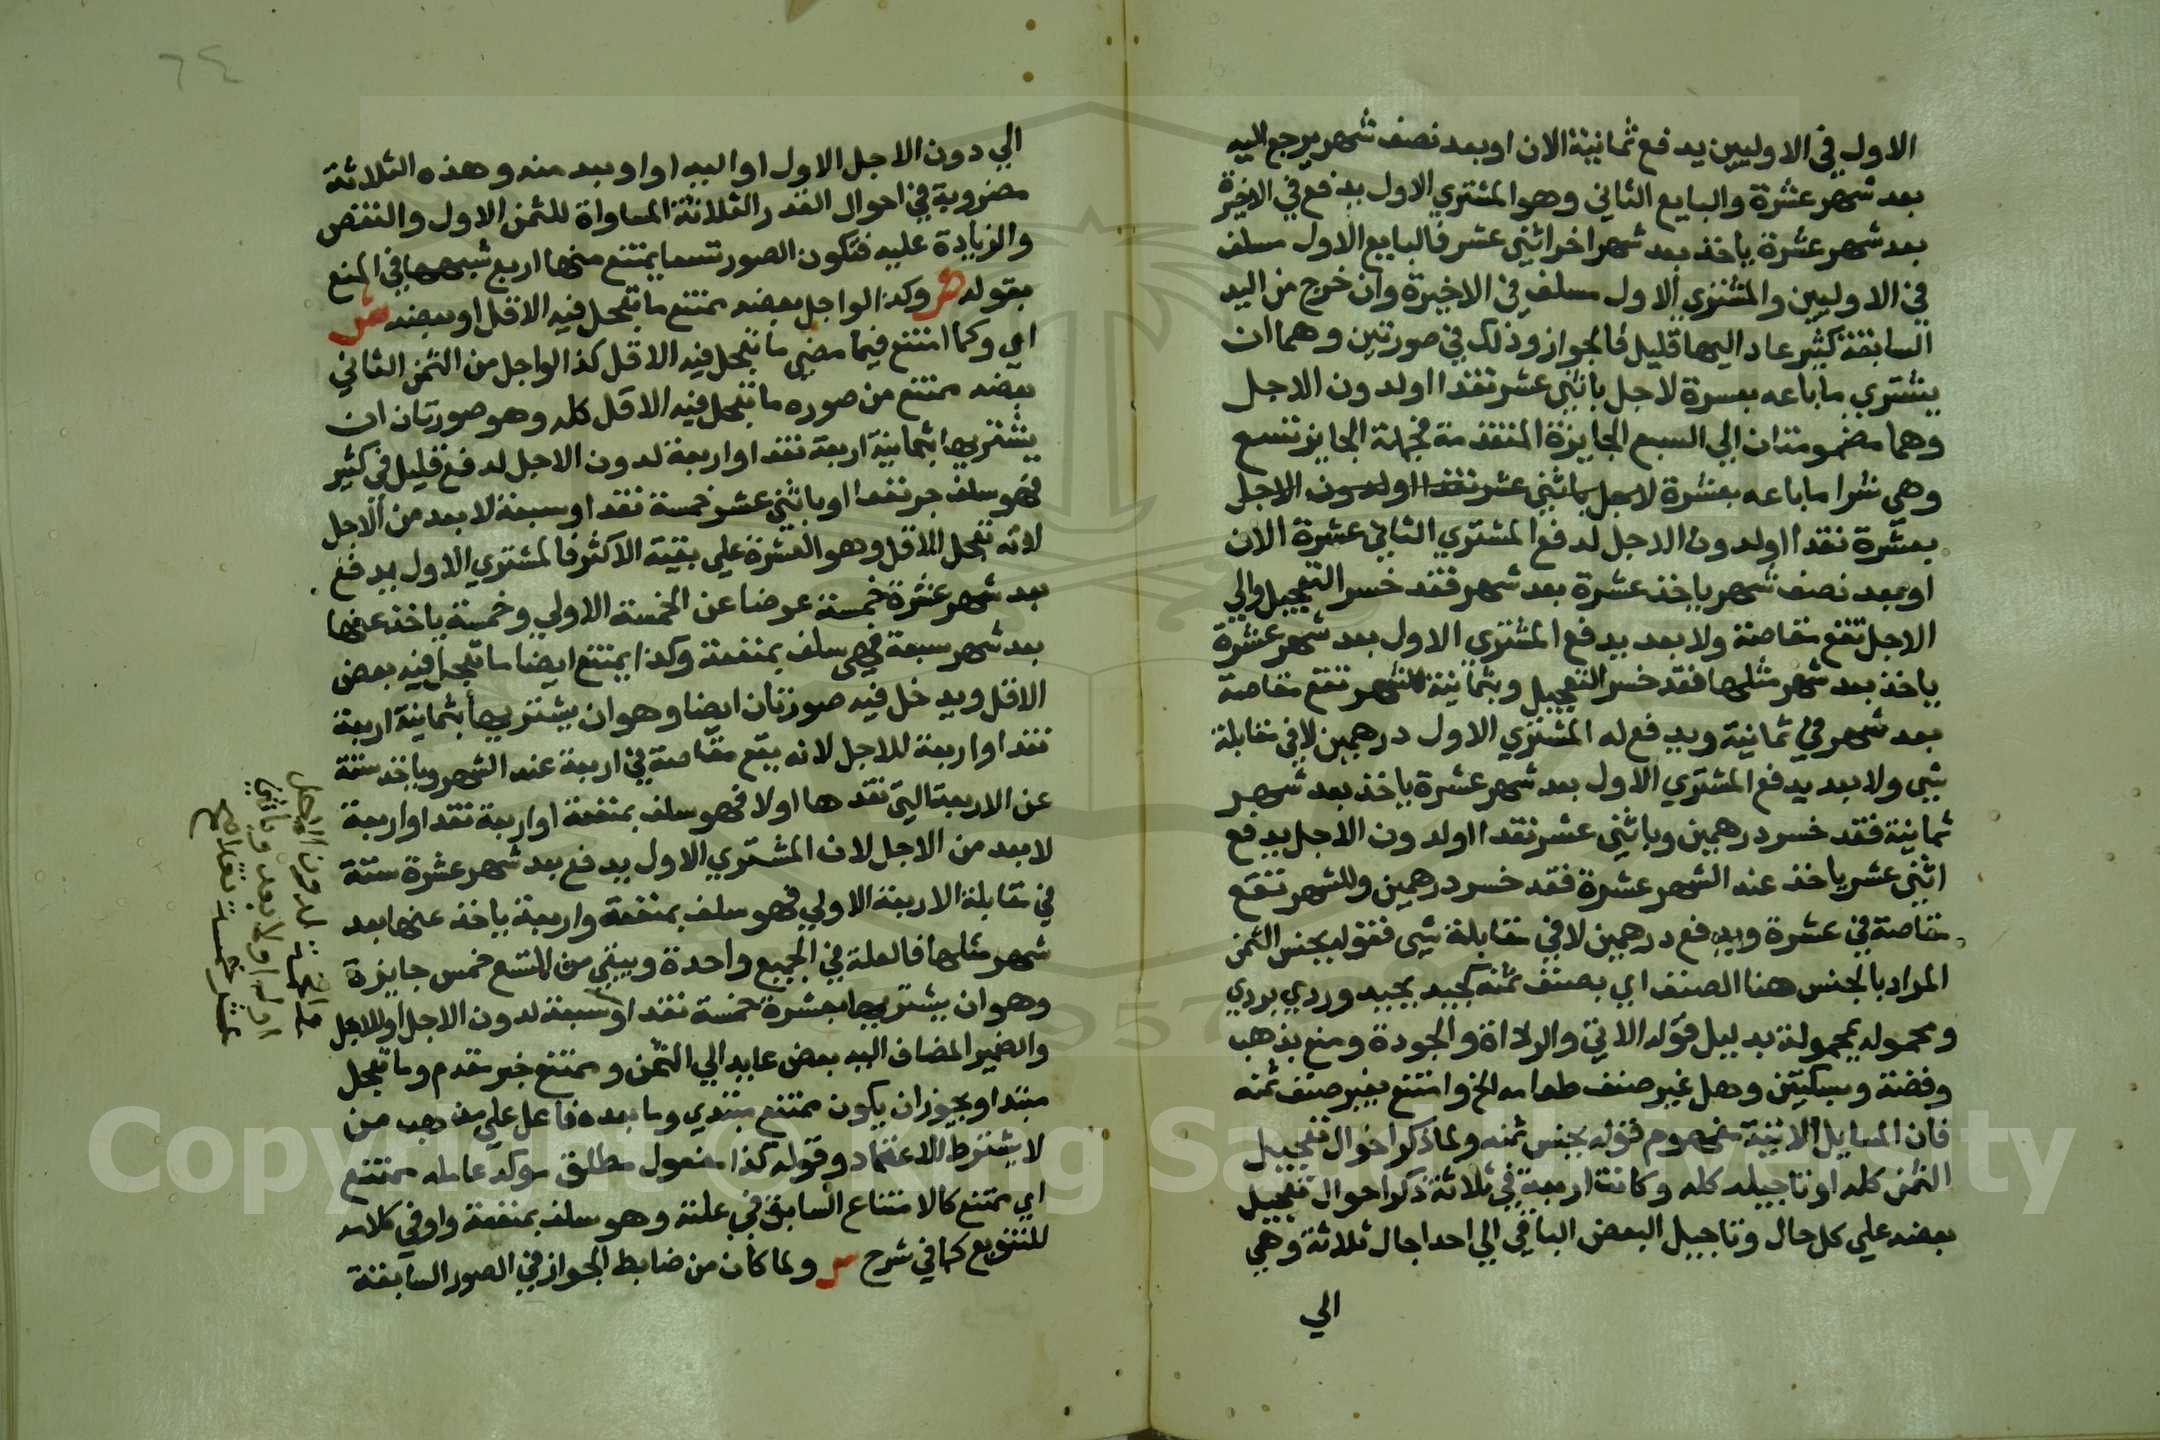 الاول في الاوليين يدفع ثمانية الان او بعد نصف شهر يرجع اليه
بعد شهر عشرة والبايع الثاني وهو المشتري الاول يدفع في الاخيرة
بعد شهر عشرة ياخذ بعد شهر اخر اثني عشر فالبايع الاول مسلف
في الاوليين والمشتري الاول مسلف في الاخيرة وان خرج من اليد
السابقة كثير عاد اليها قليل فالجواز وذلك في صورتين وهما ان
يشتري ما باعه بعشرة لاجل باثني عشر نقدا او لدون الاجل
وهما مضمومتان الي السبع الجايزة المتقدمة فجملة الجايز تسع
وهي شرا ما باعه بعشرة لاجل باثني عشر نقدا او لدون الاجل
بعشرة نقدا او لدون الاجل لدفع المشتري الثاني عشرة الان
او بعد نصف شهر ياخذ عشرة بعد شهر فقد خسر التعجيل والي
الاجل تقع مقاصة ولا بعد يدفع المشتري الاول بعد شهر عشرة
ياخذ بعد شهر مثلها فقد خسر التعجيل وبثمانية للشهر تقع مقاصة
بعد شهر في ثمانية ويدفع له المشتري الاول درهمين لا في مقابلة
شي ولا بعد يدفع المشتري الاول بعد شهر عشرة ياخذ بعد شهر
ثمانية فقد خسر درهمين وباثني عشر نقدا او لدون الاجل يدفع
اثني عشر ياخذ عند الشهر عشرة فقد خسر درهمين وللشهر تقع
مقاصة في عشرة ويدفع درهمين لا في مقابلة شي فقوله بجنس الثمن
المراد بالجنس هنا الصنف اي بصنف ثمنه كجيد بجيد وردي بردي
ومحموله بمحمولة بدليل قوله الاتي والرداة والجودة ومنع بذهب
وفضة وبسكتين وهل غير صنف طعامه الخ وامتنع بغير صنف ثمنه
فان المسايل الاتية مفهوم قوله بجنس ثمنه ولما ذكر احوال تعجيل
الثمن كله او تاجيله كله وكانت اربعة في ثلاثة ذكر احوال تعجيل
بعضه علي كل حال وتاجيل البعض الباقي الي احد اجال ثلاثة وهي
الي
الي دون الاجل الاول او اليه او ابعد منه وهذه الثلاثة
مضروبة في احوال القدر الثلاثة المساواة للثمن الاول والنقص
والزيادة عليه فتكون الصور تسعا يمتنع منها اربع شبهها في المنع
بقوله ص وكذا لو اجل بعضه ممتنع ما تعجل فيه الاقل او بعضه ش
اي وكما امتنع فيما مضي ما تعجل فيه الاقل كذا لو اجل من الثمن الثاني
بعضه ممتنع من صوره ما تعجل فيه الاقل كله وهو صورتان ان
يشتريها بثمانية اربعة نقدا واربعة لدون الاجل لدفع قليل في كثير
فهو سلف جر نفعا او باثني عشر خمسة نقدا وسبعة لابعد من الاجل
لانه تعجل الاقل وهو العشرة علي بقية الاكثر فالمشتري الاول يدفع
بعد شهر عشرة خمسة عوضا عن الخمسة الاولي وخمسة ياخذ عنها
بعد شهر سبعة فهي سلف بمنفعة وكذا يمتنع ايضا ما تعجل فيه بعض
الاقل ويدخل فيه صورتان ايضا وهو ان يشتريها بثمانية اربعة
نقدا واربعة للاجل لانه يقع مقاصة في اربعة عند الشهر وياخذ ستة
عن الاربعة التي نقدها اولا فهو سلف بمنفعة او اربعة نقدا واربعة
لابعد من الاجل لان المشتري الاول يدفع بعد شهر عشرة ستة
في مقابلة الاربعة الاولي فهو سلف بمنفعة واربعة ياخذ عنها بعد
شهر مثلها فالعلة في الجميع واحدة ويبقي من التسع خمس جايزة
وهو ان يشتريها بعشرة خمسة نقدا وسبعة لدون الاجل او للاجل
والضمير المضاف اليه بعض عايد الي الثمن وممتنع خبر مقدم وما تعجل
مبتدا ويجوز ان يكون ممتنع مبتدي وما بعده فاعل علي مذهب من
لا يشترط الاعتماد وقوله كذا مفعول مطلق موكد عامله ممتنع
اي يمتنع كالامتناع السابق في علته وهو سلف بمنفعة واو في كلامه
للتنويع كما في شرح س ولما كان من ضابط الجواز في الصور السابقة